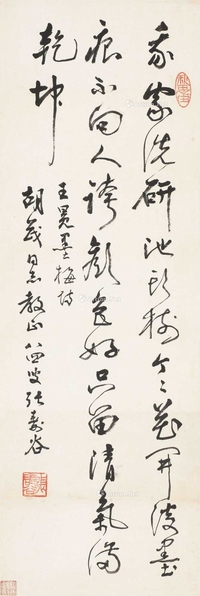 我家洗研池頭樹个々花開淡墨
痕不向人誇顏色好只留清氣滿
乾坤
王冕墨梅詩
胡茂同志教正 叟張壽谷